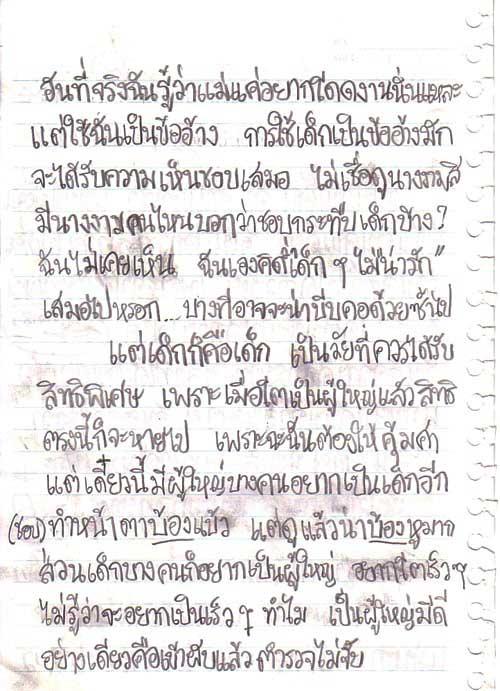 อันที่จริงฉันรู้ว่าแม่แค่อยากโดดงานนั่นแหละ
แต่ใช้ฉันเป็นข้ออ้าง การใช้เด็กเป็นข้ออ้างมัก
จะได้รับความเห็นชอบเสมอ ไม่เชื่อดูนางงามสิ
มีนางงามคนไหนบอกว่าชอบกระทืบเด็กบ้าง?
ฉันไม่เคยเห็น ฉันเองคิดว่าเด็ก ๆ ไม่"น่ารัก"
เสมอไปหรอก... บางทีอาจจะน่าบีบคอด้วยซ้ำไป
แต่เด็กก็คือเด็ก เป็นวัยที่ควรได้รับ
สิทธิพิเศษ เพราะเมื่อโตเป็นผู้ใหญ่แล้วสิทธิ
ตรงนี้ก็จะหายไป เพราะฉะนั้นต้องใช้ให้คุ้มค่า
แต่เดี๋ยวนี้มีผู้ใหญ่บางคนอยากเป็นเด็กอีก
(ชอบ) ทำหน้าตาบ้องแบ๊ว แต่ดูแล้วน่าบ้องหูมาก
ส่วนเด็กบางคนก็อยากเป็นผู้ใหญ่ อยากโตเร็วๆ
ไม่รู้ว่าจะอยากเป็นเร็ว ๆ ทำไม เป็นผู้ใหญ่มีดี
อย่างเดียวคือเข้าผับแล้วตำรวจไม่จับ